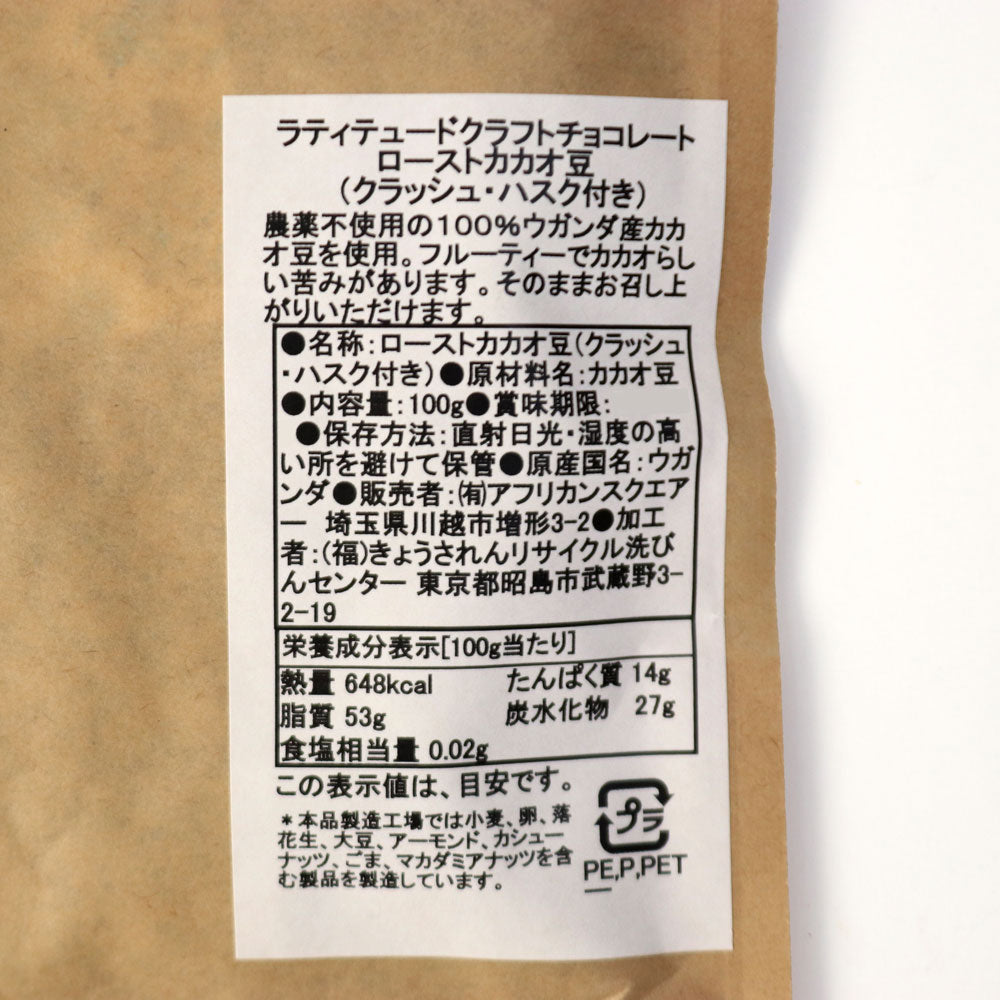 ラティテュードクラフトチョコレート
ローストカカオ豆
(クラッシュ・ハスク付き)
農薬不使用の100%ウガンダ産カカ
オ豆を使用。フルーティーでカカオらし
い苦みがあります。そのままお召し上
がりいただけます。
●名称:ローストカカオ豆(クラッシュ
・ハスク付き)●原材料名:カカオ豆
●内容量:100g●賞味期限:
●保存方法:直射日光・湿度の高
い所を避けて保管●原産国名:ウガ
ンダ●販売者:㈲アフリカンスクエア
ー 埼玉県川越市増形3-2●加工
者:(福)きょうされんリサイクル洗び
んセンター 東京都昭島市武蔵野3-
2-19
栄養成分表示[100g当たり]
熱量 648kcal たんぱく質 14g
脂質 53g 炭水化物 27g
食塩相当量 0.02g
この表示値は、目安です。
*本品製造工場では小麦、卵、落
花生、大豆、アーモンド、カシュー
ナッツ、ごま、マカダミアナッツを含
む製品を製造しています。
プラ
PE,P,PET